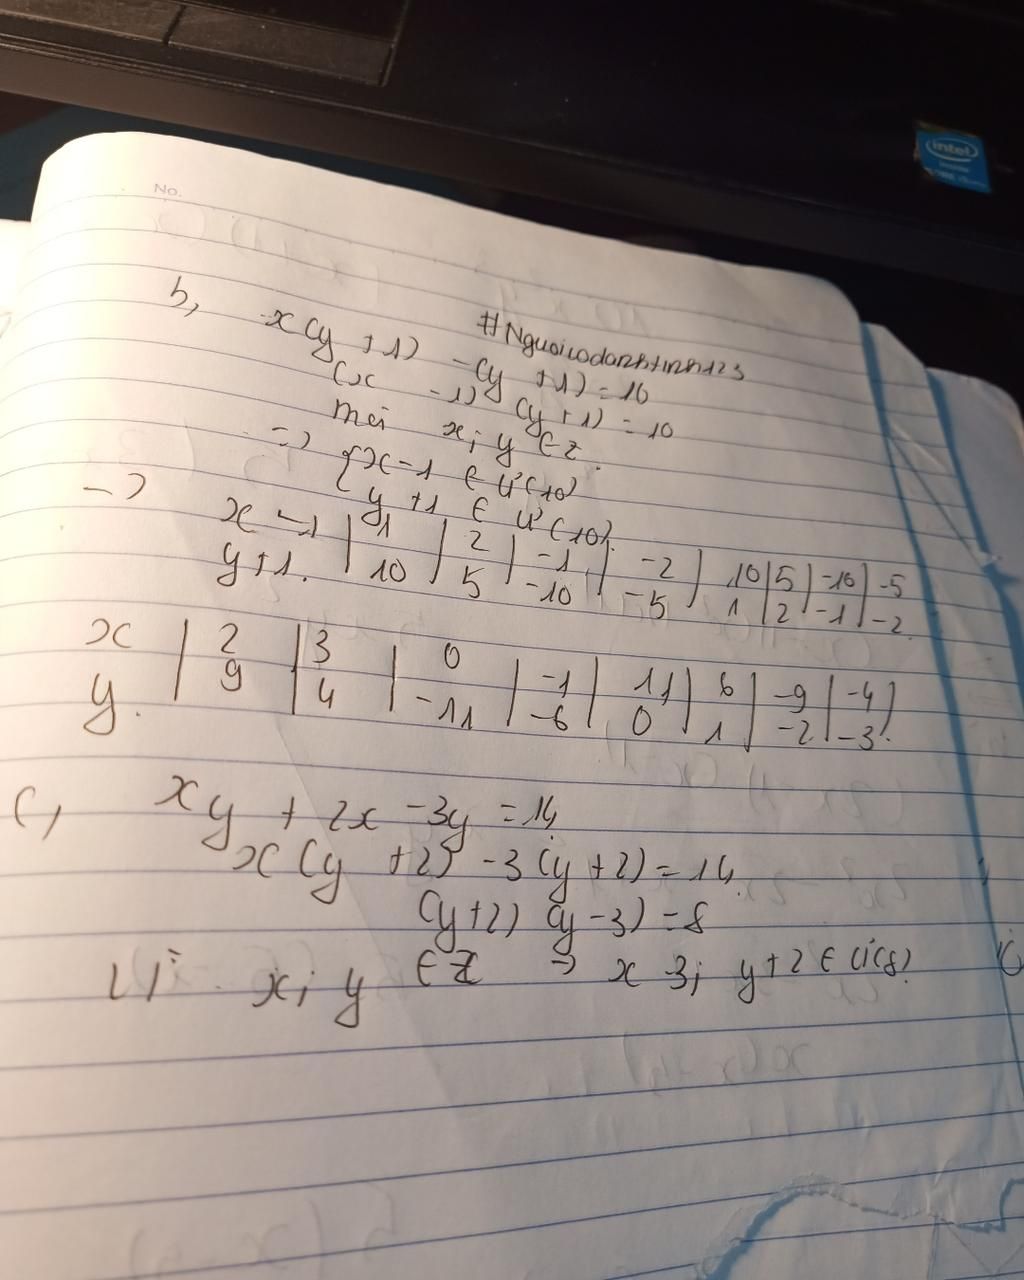 intel
No.
#Nguoicodanhtinh123
b, x(y+1) -(y+1) = 10
(x-1) (y+1) = 10
x; y ∈ Z.
=> { x-1 ∈ Ư(10)
y+1 ∈ Ư(10).
->
x-1 | 1 | 2 | -1 | -2 | 10 | 5 | -10 | -5
y+1. | 10 | 5 | -10 | -5 | 1 | 2 | -1 | -2
x | 2 | 3 | 0 | -1 | 11 | 6 | -9 | -4
y. | 9 | 4 | -11 | -6 | 0 | 1 | -2 | -3
c, xy + 2x - 3y = 14
x(y+2) - 3(y+2) = 14
(y+2) (y-3) = 8
Vì x; y ∈ Z => x 3; y+2 ∈ Ư(8)